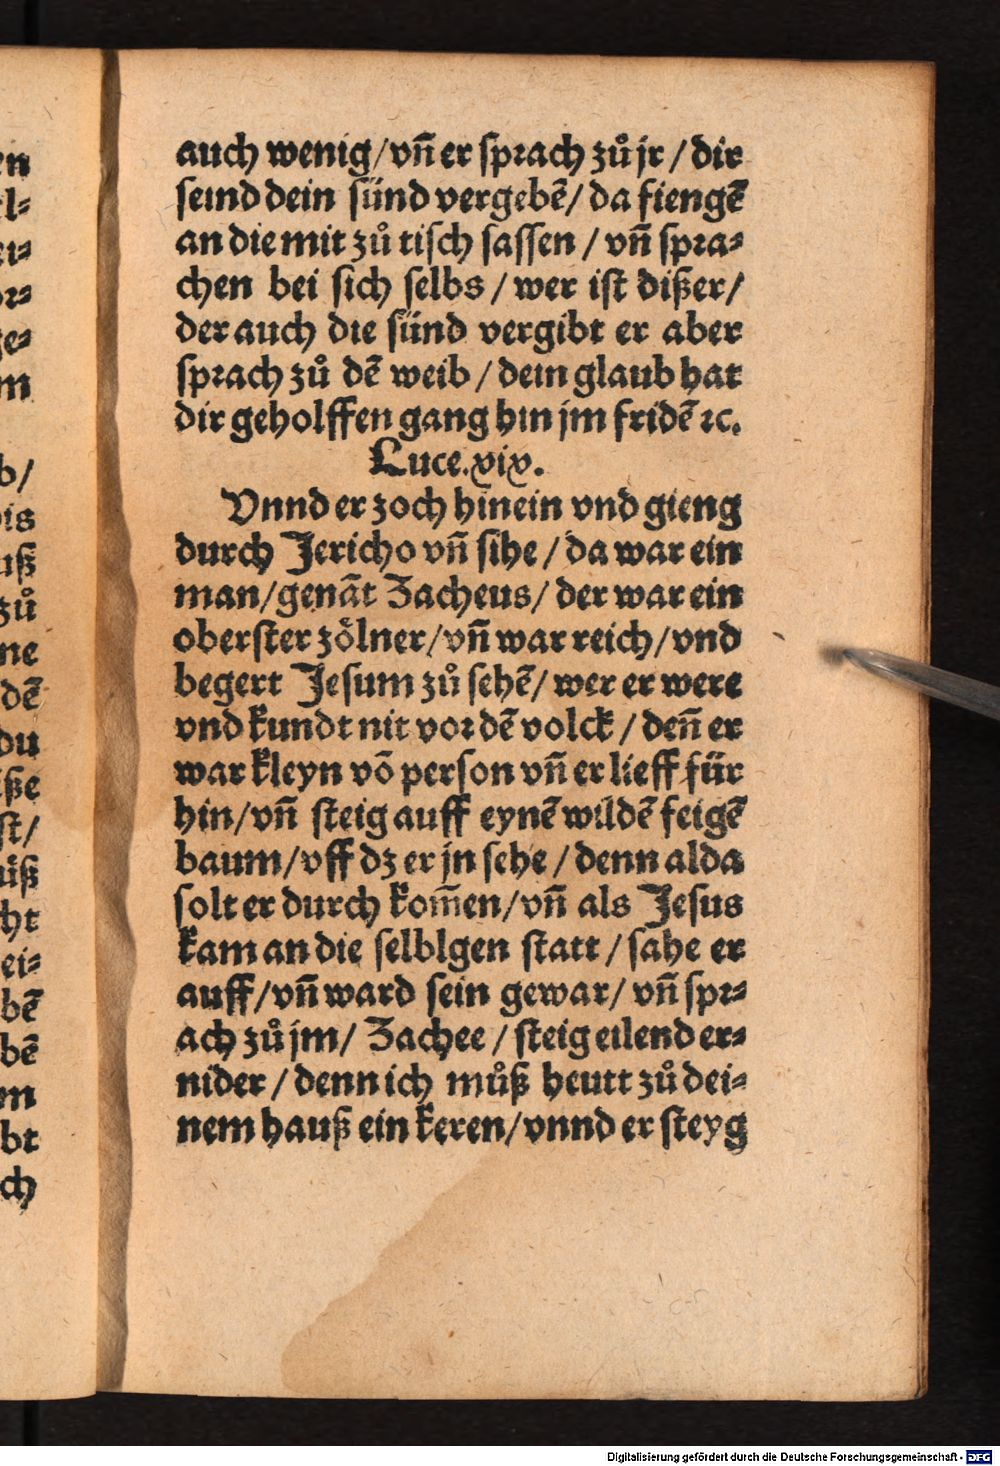 auch wenig/vñ er sprach zůjr / dir
seind dein sünd vergebē/ da fiengē
an die mit zů tisch sassen / vñ spra⸗
chen bei sich selbs / wer ist dißer/
der auch die sünd vergibt er aber
sprach zů dē weib / dein glaub hat
dir geholffen gang hin jm fridē ꝛc.
Luce.xix.
Vnnd er zoch hinein vnd gieng
durch Jericho vñ sihe / da war ein
man/genāt Zacheus/ der war ein
oberster zoͤlner/vñ war reich/vnd
begert Jesum zů sehē/ wer er were
vnd kundt nit vor dē volck / deñ er
war kleyn võ person vñ er lieff für
hin/vñ steig auff eynē wildē feigē
baum/vff dz er jn sehe / denn alda
solt er durch kom̄en/vñ als Jesus
kam an die selblgen statt / sahe er
auff/vñ ward sein gewar/ vñ spr⸗
ach zů jm/ Zachee / steig eilend er⸗
nider / denn ich můß heutt zů dei⸗
nem hauß ein keren/vnnd er steyg
en
l⸗
ei⸗
or⸗
ge⸗
m
b/
bis
uß
zů
ne
dē
du
iße
st/
ůß
ht
ei⸗
bē
bē
m
bt
ch
Digitalisierung gefördert durch die Deutsche Forschungsgemeinschaft - DFG